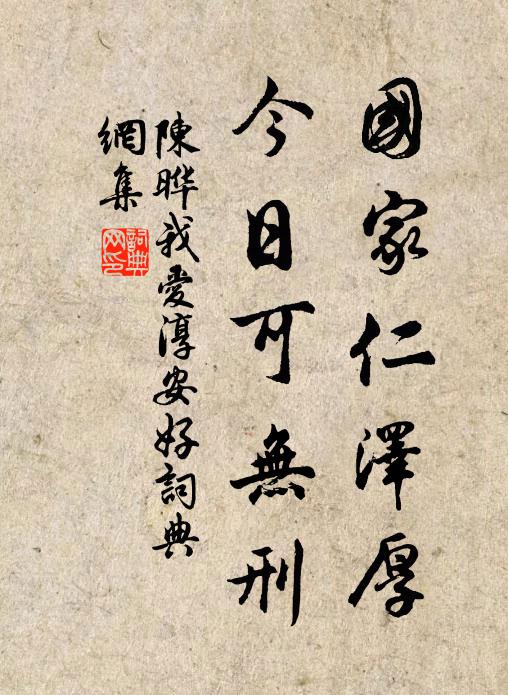 國家仁澤厚
今日可無刑
陳曄我愛淳安好詞典
網集
詞典網印